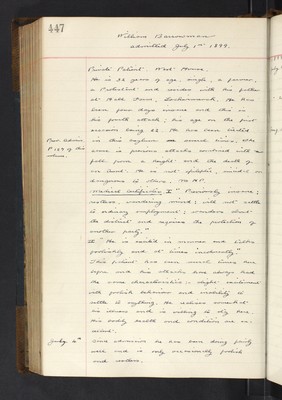 447
William Barrowman
admitted July 1st 1899.
Private Patient. West House.
He is 32 years of age, single, a farmer,
a Protestant and resides with his father
at Hills Town, Lochmaben. He has
been four days insane and this is
his fourth attack; his age on the first
occasion being 22. He has been treated
in this asylum on several times. The
cause is previous attacks combined with a
fall from a height and the death of
an Aunt. He is not epileptic, suicidal or
dangerous to others.
Medical Certificates I "Previously insane;
restless, wandering mind; will not settle
to ordinary employment; wanders about
the district and requires the protection of
another party."
II "He is excited in manner and talks
foolishly and at times incoherently."
This patient has been several times here
before and his attacks have always had
the same characteristics: slight excitement
with foolish behaviour and inability to
settle to anything. He
his illness and is willing to stay here.
His bodily health and condition are
Prev. Admn.
P. 159 of this
volume.
July 4th
Since admission he has been fairly
well and is only occasionally foolish
and restless.